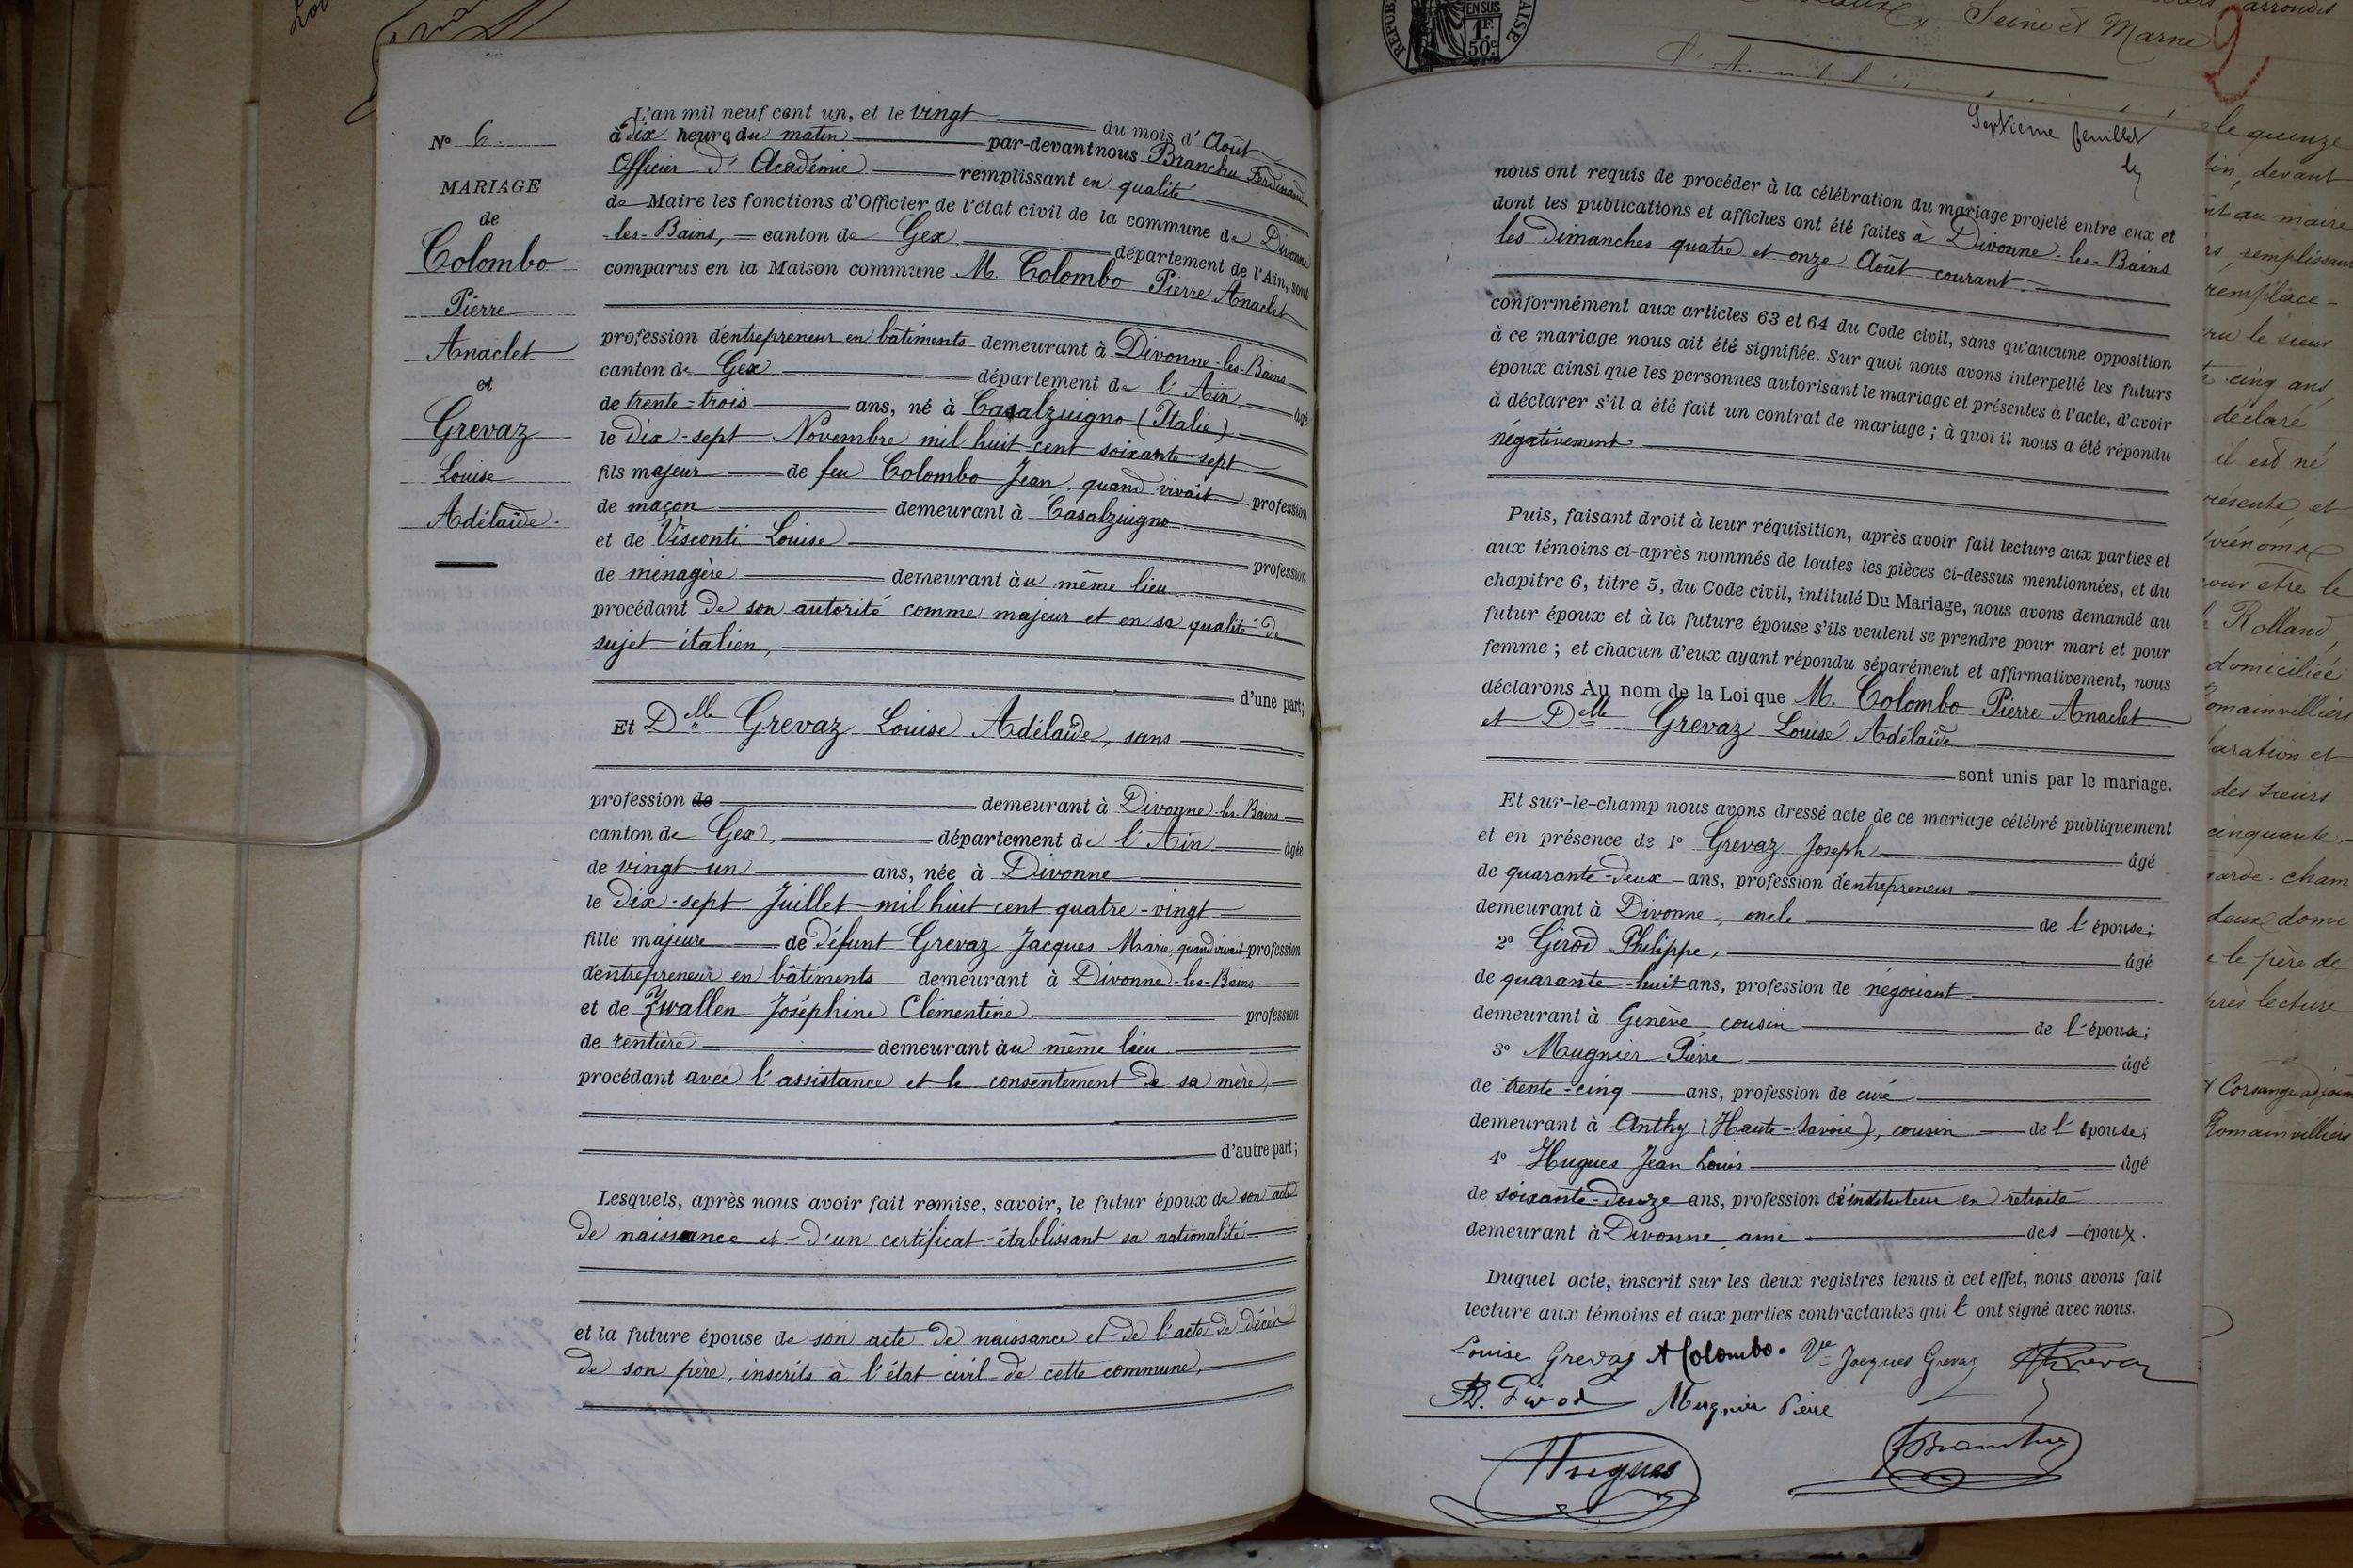 N° 6.
MARIAGE
de
Colombo
Pierre
Anaclet
et
Grevaz
Louise
Adélaïde.
L'an mil neuf cent un, et le vingt du mois d'Août
à dix heures du matin par-devant nous Branchu Ferdinand
Officier d'Académie remplissant en qualité
de Maire les fonctions d'Officier de l'état civil de la commune de Divonne
-les-Bains, canton de Gex département de l'Ain, sont
comparus en la Maison commune M. Colombo Pierre Anaclet
profession d'entrepreneur en bâtiments demeurant à Divonne-les-Bains
canton de Gex département de l'Ain âgé
de trente-trois ans, né à Casalzuigno (Italie)
le dix-sept Novembre mil huit cent soixante-sept
fils majeur de feu Colombo Jean, quand vivait profession
de maçon demeurant à Casalzuigno
et de Visconti Louise profession
de ménagère demeurant au même lieu
procédant de son autorité comme majeur et en sa qualité de
sujet italien,
d'une part;
Et Delle Grevaz Louise Adélaïde, sans
profession de demeurant à Divonne-les-Bains
canton de Gex, département de l'Ain âgée
de vingt-un ans, née à Divonne
le dix-sept Juillet mil huit cent quatre-vingt
fille majeure de défunt Grevaz Jacques Marie, quand vivait profession
d'entrepreneur en bâtiments demeurant à Divonne-les-Bains
et de Zwallen Joséphine Clémentine profession
de rentière demeurant au même lieu
procédant avec l'assistance et le consentement de sa mère,
d'autre part;
Lesquels, après nous avoir fait remise, savoir, le futur époux de son acte
de naissance et d'un certificat établissant sa nationalité
et la future épouse de son acte de naissance et de l'acte de décès
de son père, inscrits à l'état civil de cette commune,
REPUB
AISE
ENSUS
1F.
50c.
arrondis
Seine et Marne
2
Septième feuillet
nous ont requis de procéder à la célébration du mariage projeté entre eux et
dont les publications et affiches ont été faites à Divonne-les-Bains
les dimanches quatre et onze Août courant.
conformément aux articles 63 et 64 du Code civil, sans qu'aucune opposition
à ce mariage nous ait été signifiée. Sur quoi nous avons interpellé les futurs
époux ainsi que les personnes autorisant le mariage et présentes à l'acte, d'avoir
à déclarer s'il a été fait un contrat de mariage; à quoi il nous a été répondu
négativement.
Puis, faisant droit à leur réquisition, après avoir fait lecture aux parties et
aux témoins ci-après nommés de toutes les pièces ci-dessus mentionnées, et du
chapitre 6, titre 5, du Code civil, intitulé Du Mariage, nous avons demandé au
futur époux et à la future épouse s'ils veulent se prendre pour mari et pour
femme; et chacun d'eux ayant répondu séparément et affirmativement, nous
déclarons Au nom de la Loi que M. Colombo Pierre Anaclet
et Delle Grevaz Louise Adélaïde
sont unis par le mariage.
Et sur-le-champ nous avons dressé acte de ce mariage célébré publiquement
et en présence de 1° Grevaz Joseph âgé
de quarante-deux ans, profession d'entrepreneur
demeurant à Divonne, oncle de l'épouse;
2° Girod Philippe, âgé
de quarante-huit ans, profession de négociant
demeurant à Genève, cousin de l'épouse;
3° Mugnier Pierre âgé
de trente-cinq ans, profession de curé
demeurant à Anthy (Haute-Savoie), cousin de l'épouse;
4° Hugues Jean Louis âgé
de soixante-douze ans, profession d'instituteur en retraite
demeurant à Divonne, ami des époux.
Duquel acte, inscrit sur les deux registres tenus à cet effet, nous avons fait
lecture aux témoins et aux parties contractantes qui l'ont signé avec nous.
Louise Grevaz A Colombo. Ve Jacques Grevaz Grevaz
Ph. Girod Mugnier Pierre
Hugues Branchu
le quinze
devant
au maire
remplissant
remplace-
le sieur
cinq ans
déclaré
il est né
présenté et
prénoms
pour être le
Rolland,
domiciliée
omainvilliers
aration et
des sieurs
cinquante-
arde-cham
deux domi
le père de
près lecture
Corsange adjoint
Romainvilliers